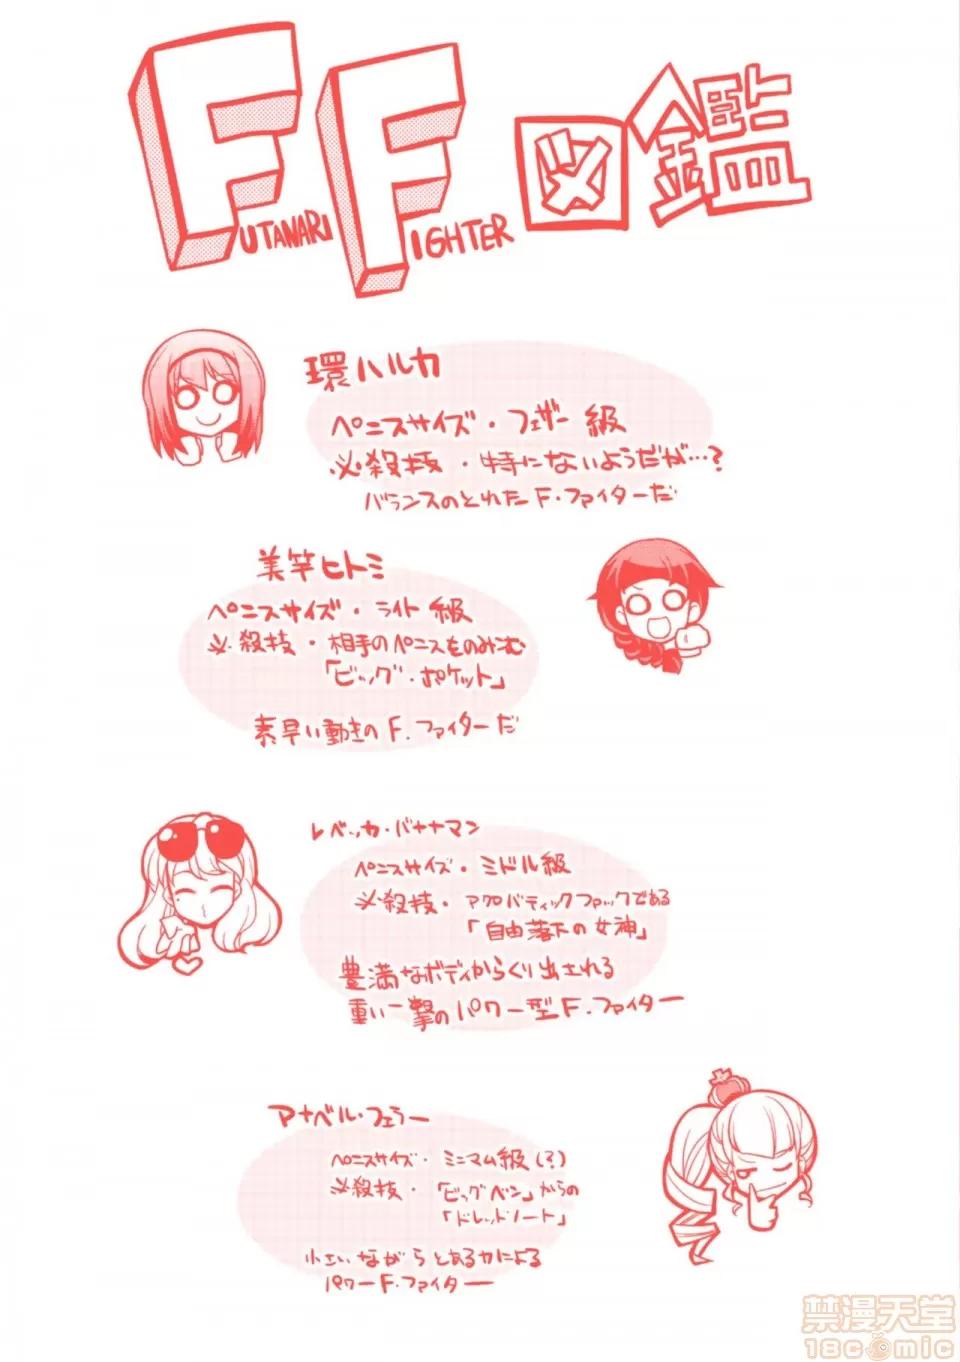 FUTANARI FIGHTER 図鑑
環ハルカ
ペニスサイズ・フェザー級
必殺技・特にないようだが…?
バランスのとれたF.ファイターだ
美竿ヒトミ
ペニスサイズ・ライト級
必殺技・相手のペニスをのみこむ
「ビッグ・ポケット」
素早い動きのF.ファイターだ
レベッカ・バナナマン
ペニスサイズ・ミドル級
必殺技・アクロバティックファックである
「自由落下の女神」
豊満なボディからくり出される
重い一撃のパワー型F.ファイター
アナベル・フェラー
ペニスサイズ・ミニマム級(?)
必殺技・「ビッグベン」からの
「ドレッドノート」
小さいながらとある力による
パワーF.ファイター
禁漫天堂
18comic.com